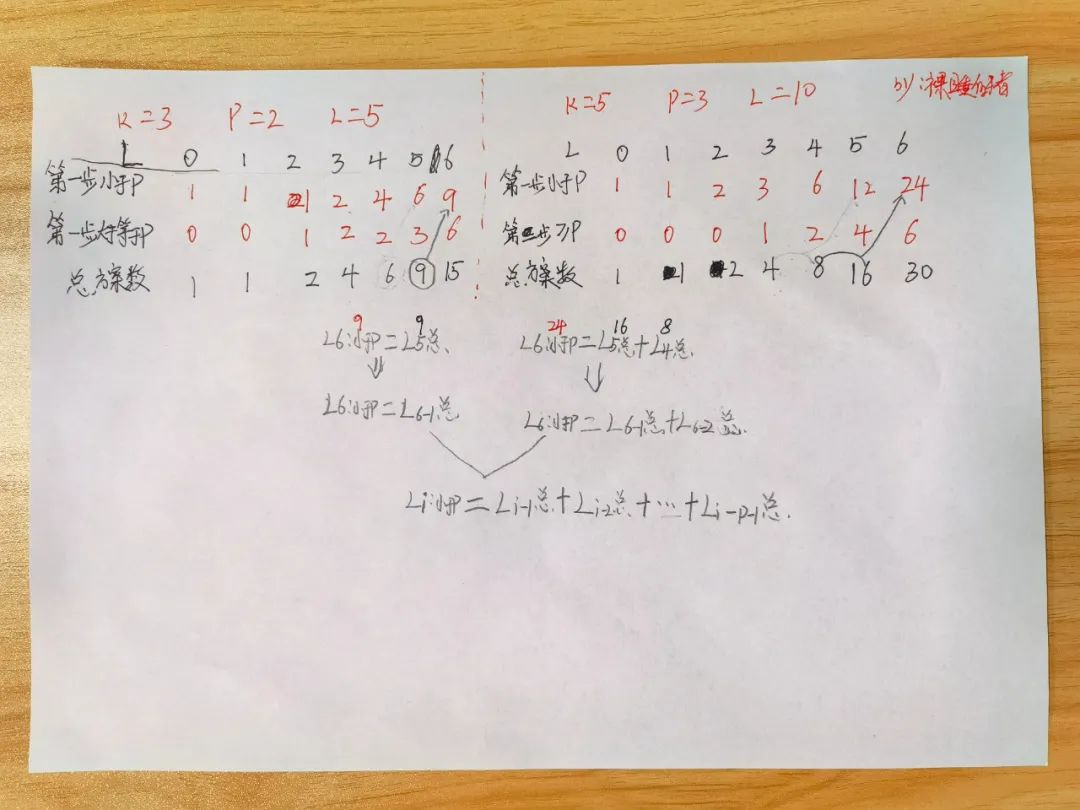 K=3 P=2 L=5
L 0 1 2 3 4 5 6
第一步小于P 1 1 1 2 4 6 9
第一步大于等于P 0 0 1 2 2 3 6
总方案数 1 1 2 4 6 9 15
K=5 P=3 L=10
by:裸睡好者
L 0 1 2 3 4 5 6
第一步小于P 1 1 2 3 6 12 24
第一步≥P 0 0 0 1 2 4 6
总方案数 1 1 2 4 8 16 30
9 9
L6:小于P=L5总
L6:小于P=L6-1总
24 16 8
L6:小于P=L5总+L4总
L6:小于P=L6-1总+L6-2总
Li:小于P=Li-1总+Li-2总+…+Li-p-1总.